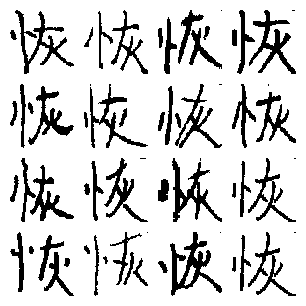 恢恢恢恢
恢恢恢恢
恢恢恢恢
恢恢恢恢